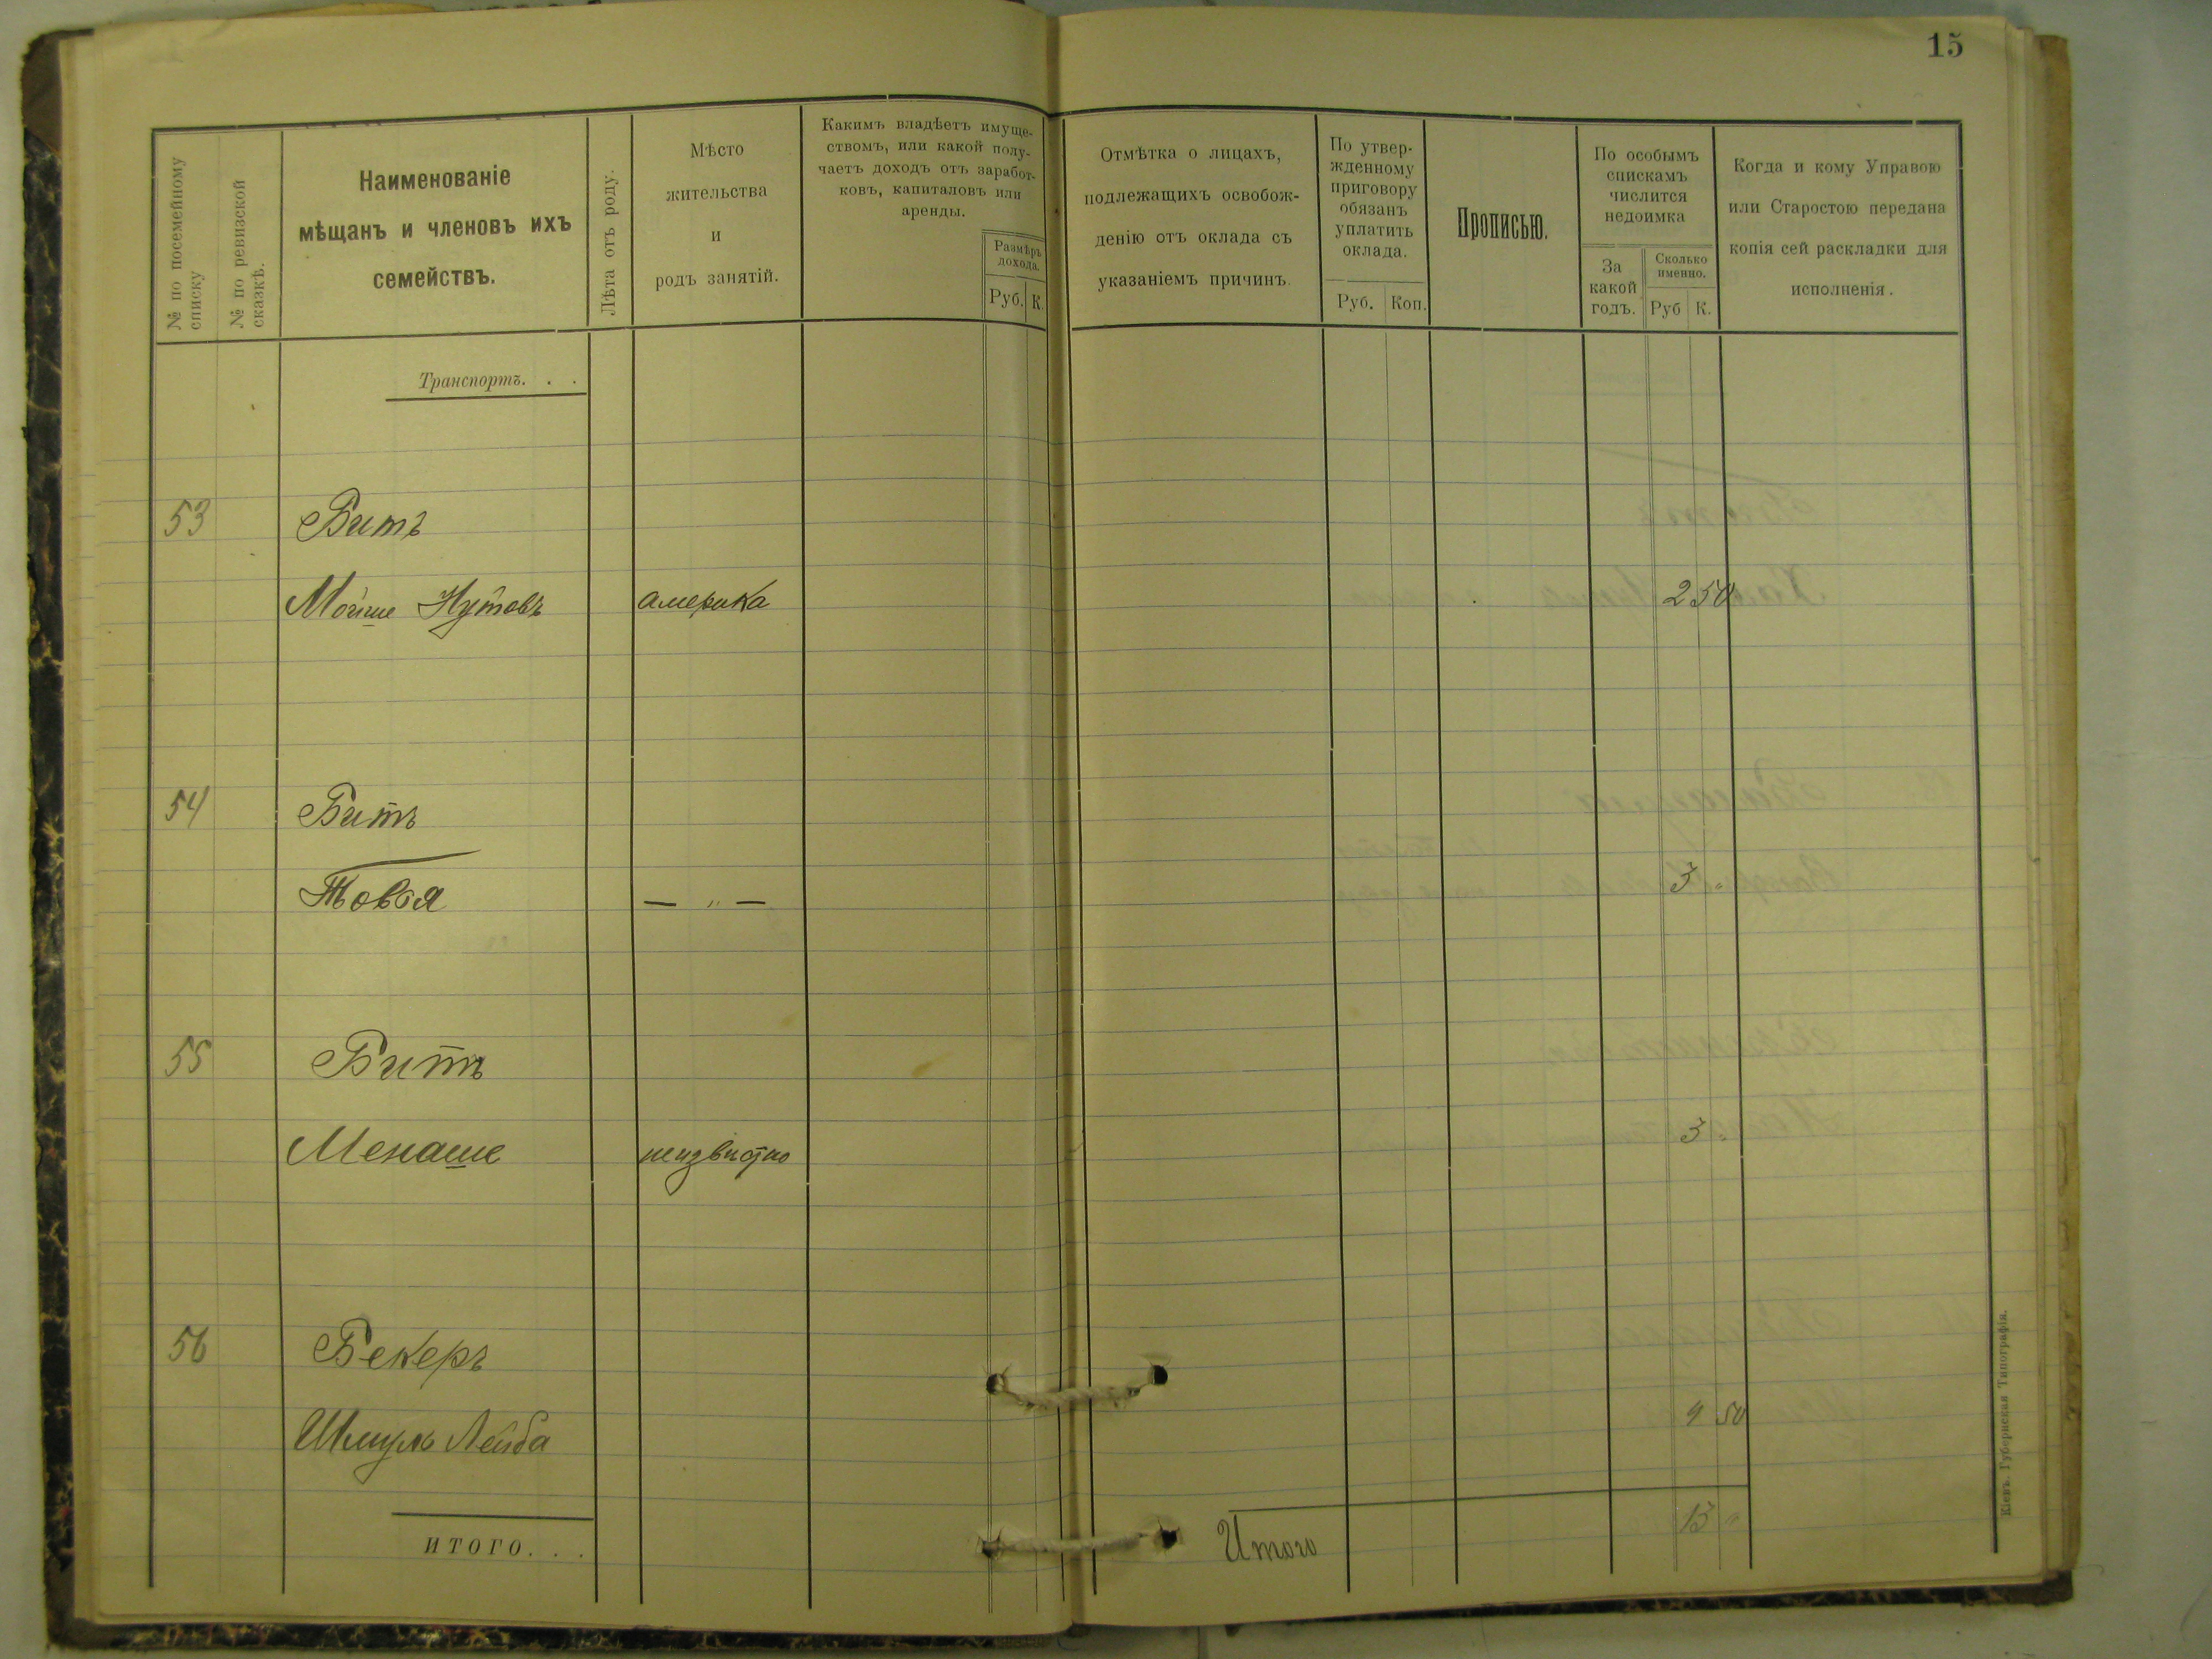 15
№ по посемейному
списку
№ по ревизской
сказкѣ.
Наименованіе
мѣщанъ и членовъ ихъ
семействъ.
Лѣта отъ роду.
Мѣсто
жительства
и
родъ занятій.
Какимъ владѣетъ имуще-
ствомъ, или какой полу-
чаетъ доходъ отъ заработ-
ковъ, капиталовъ или
аренды.
Размѣръ
дохода.
Руб. К.
Отмѣтка о лицахъ,
подлежащихъ освобож-
денію отъ оклада съ
указаніемъ причинъ.
По утвер-
жденному
приговору
обязанъ
уплатить
оклада.
Руб. Коп.
Прописью.
По особымъ
спискамъ
числится
недоимка
За
какой
годъ.
Сколько
именно.
Руб К.
Когда и кому Управою
или Старостою передана
копія сей раскладки для
исполненія.
Транспортъ. . .
53 Битъ
Мойше Нутовъ америка 2 50
54 Битъ
Товья — " — 3 "
55 Битъ
Менаше неизвистно 3 "
56 Бекеръ
Шмуль Лейба 4 50
ИТОГО. . . Итого 13 "
Кіевъ. Губернская Типографія.